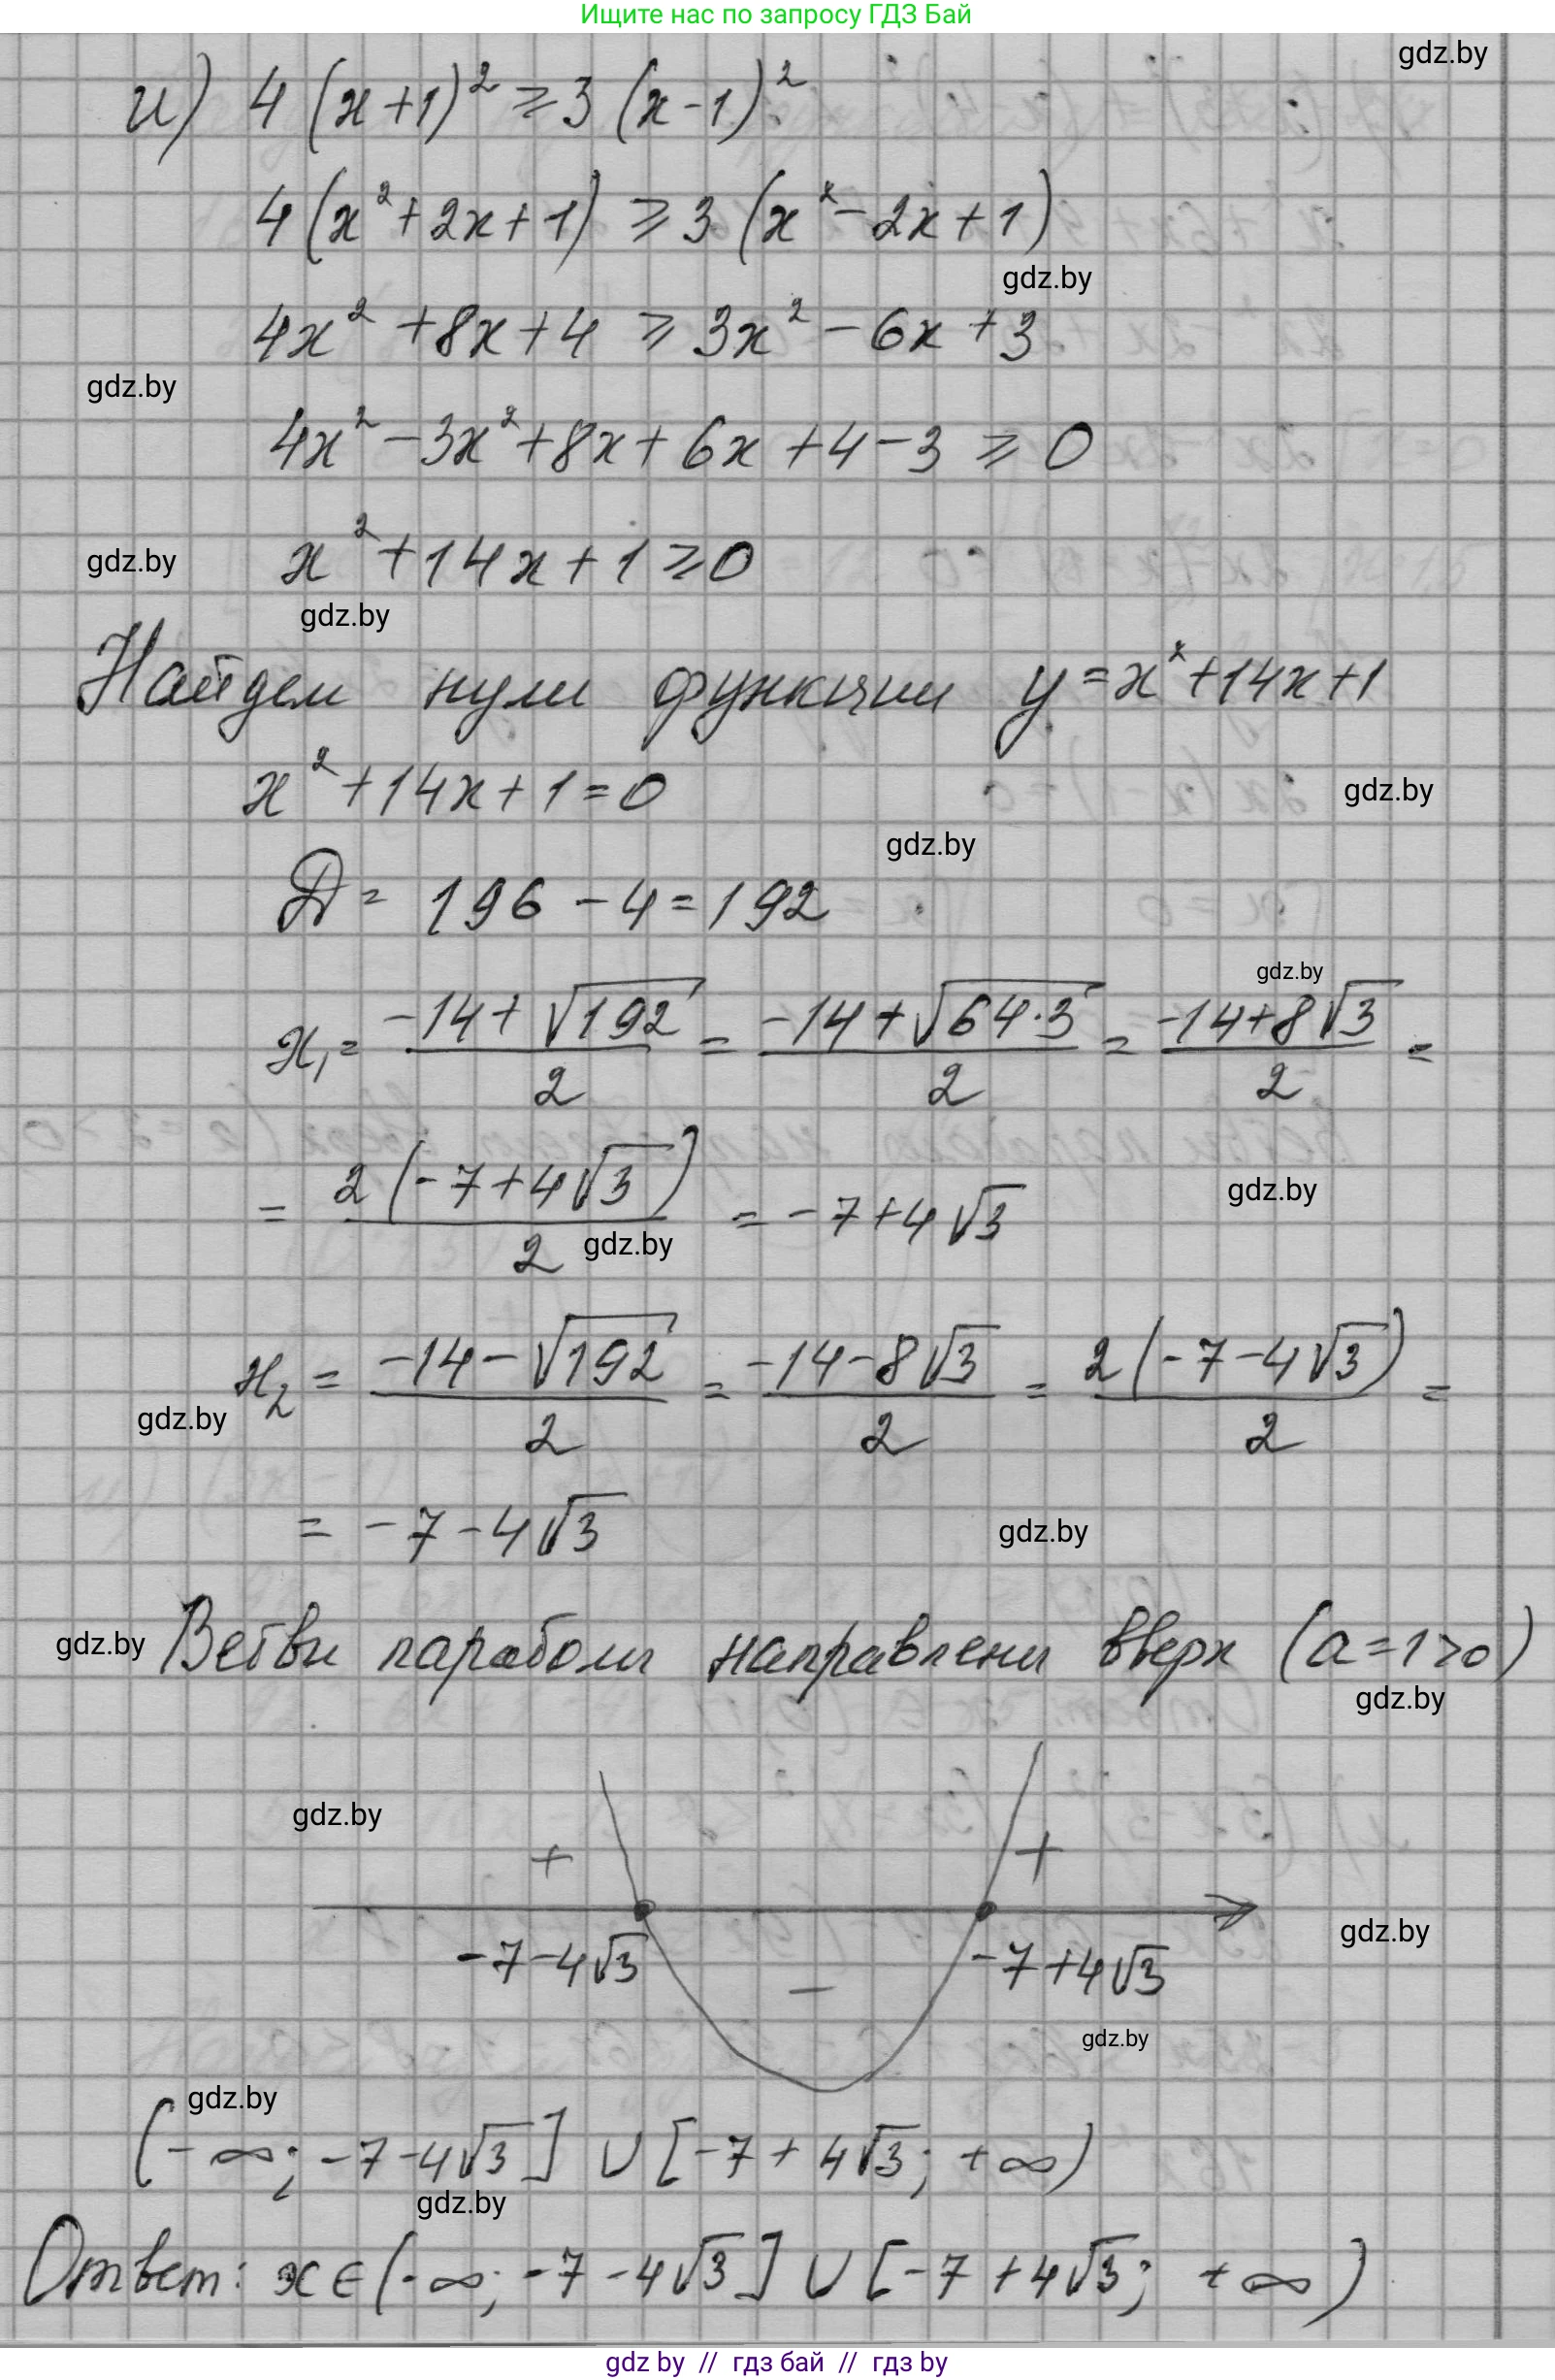 Ищите нас по запросу ГДЗ Бай
gdz.by
и) 4(x+1)² ⩾ 3(x-1)²
4(x²+2x+1) ⩾ 3(x²-2x+1)
gdz.by
4x²+8x+4 ⩾ 3x²-6x+3
gdz.by
4x²-3x²+8x+6x+4-3 ⩾ 0
gdz.by
x²+14x+1 ⩾ 0
gdz.by
Найдем нули функции y=x²+14x+1
x²+14x+1=0
gdz.by
gdz.by
D = 196-4=192
gdz.by
x₁ = (-14+√192)/2 = (-14+√(64·3))/2 = (-14+8√3)/2 =
= 2(-7+4√3)/2 = -7+4√3
gdz.by
gdz.by
x₂ = (-14-√192)/2 = (-14-8√3)/2 = 2(-7-4√3)/2 =
gdz.by
= -7-4√3
gdz.by
gdz.by
Ветви параболы направлены вверх (a=1>0)
gdz.by
gdz.by
+ +
gdz.by
-7-4√3 - -7+4√3
gdz.by
gdz.by
(-∞; -7-4√3] ∪ [-7+4√3; +∞)
gdz.by
Ответ: x∈(-∞; -7-4√3] ∪ [-7+4√3; +∞)
gdz by // гдз бай // гдз by